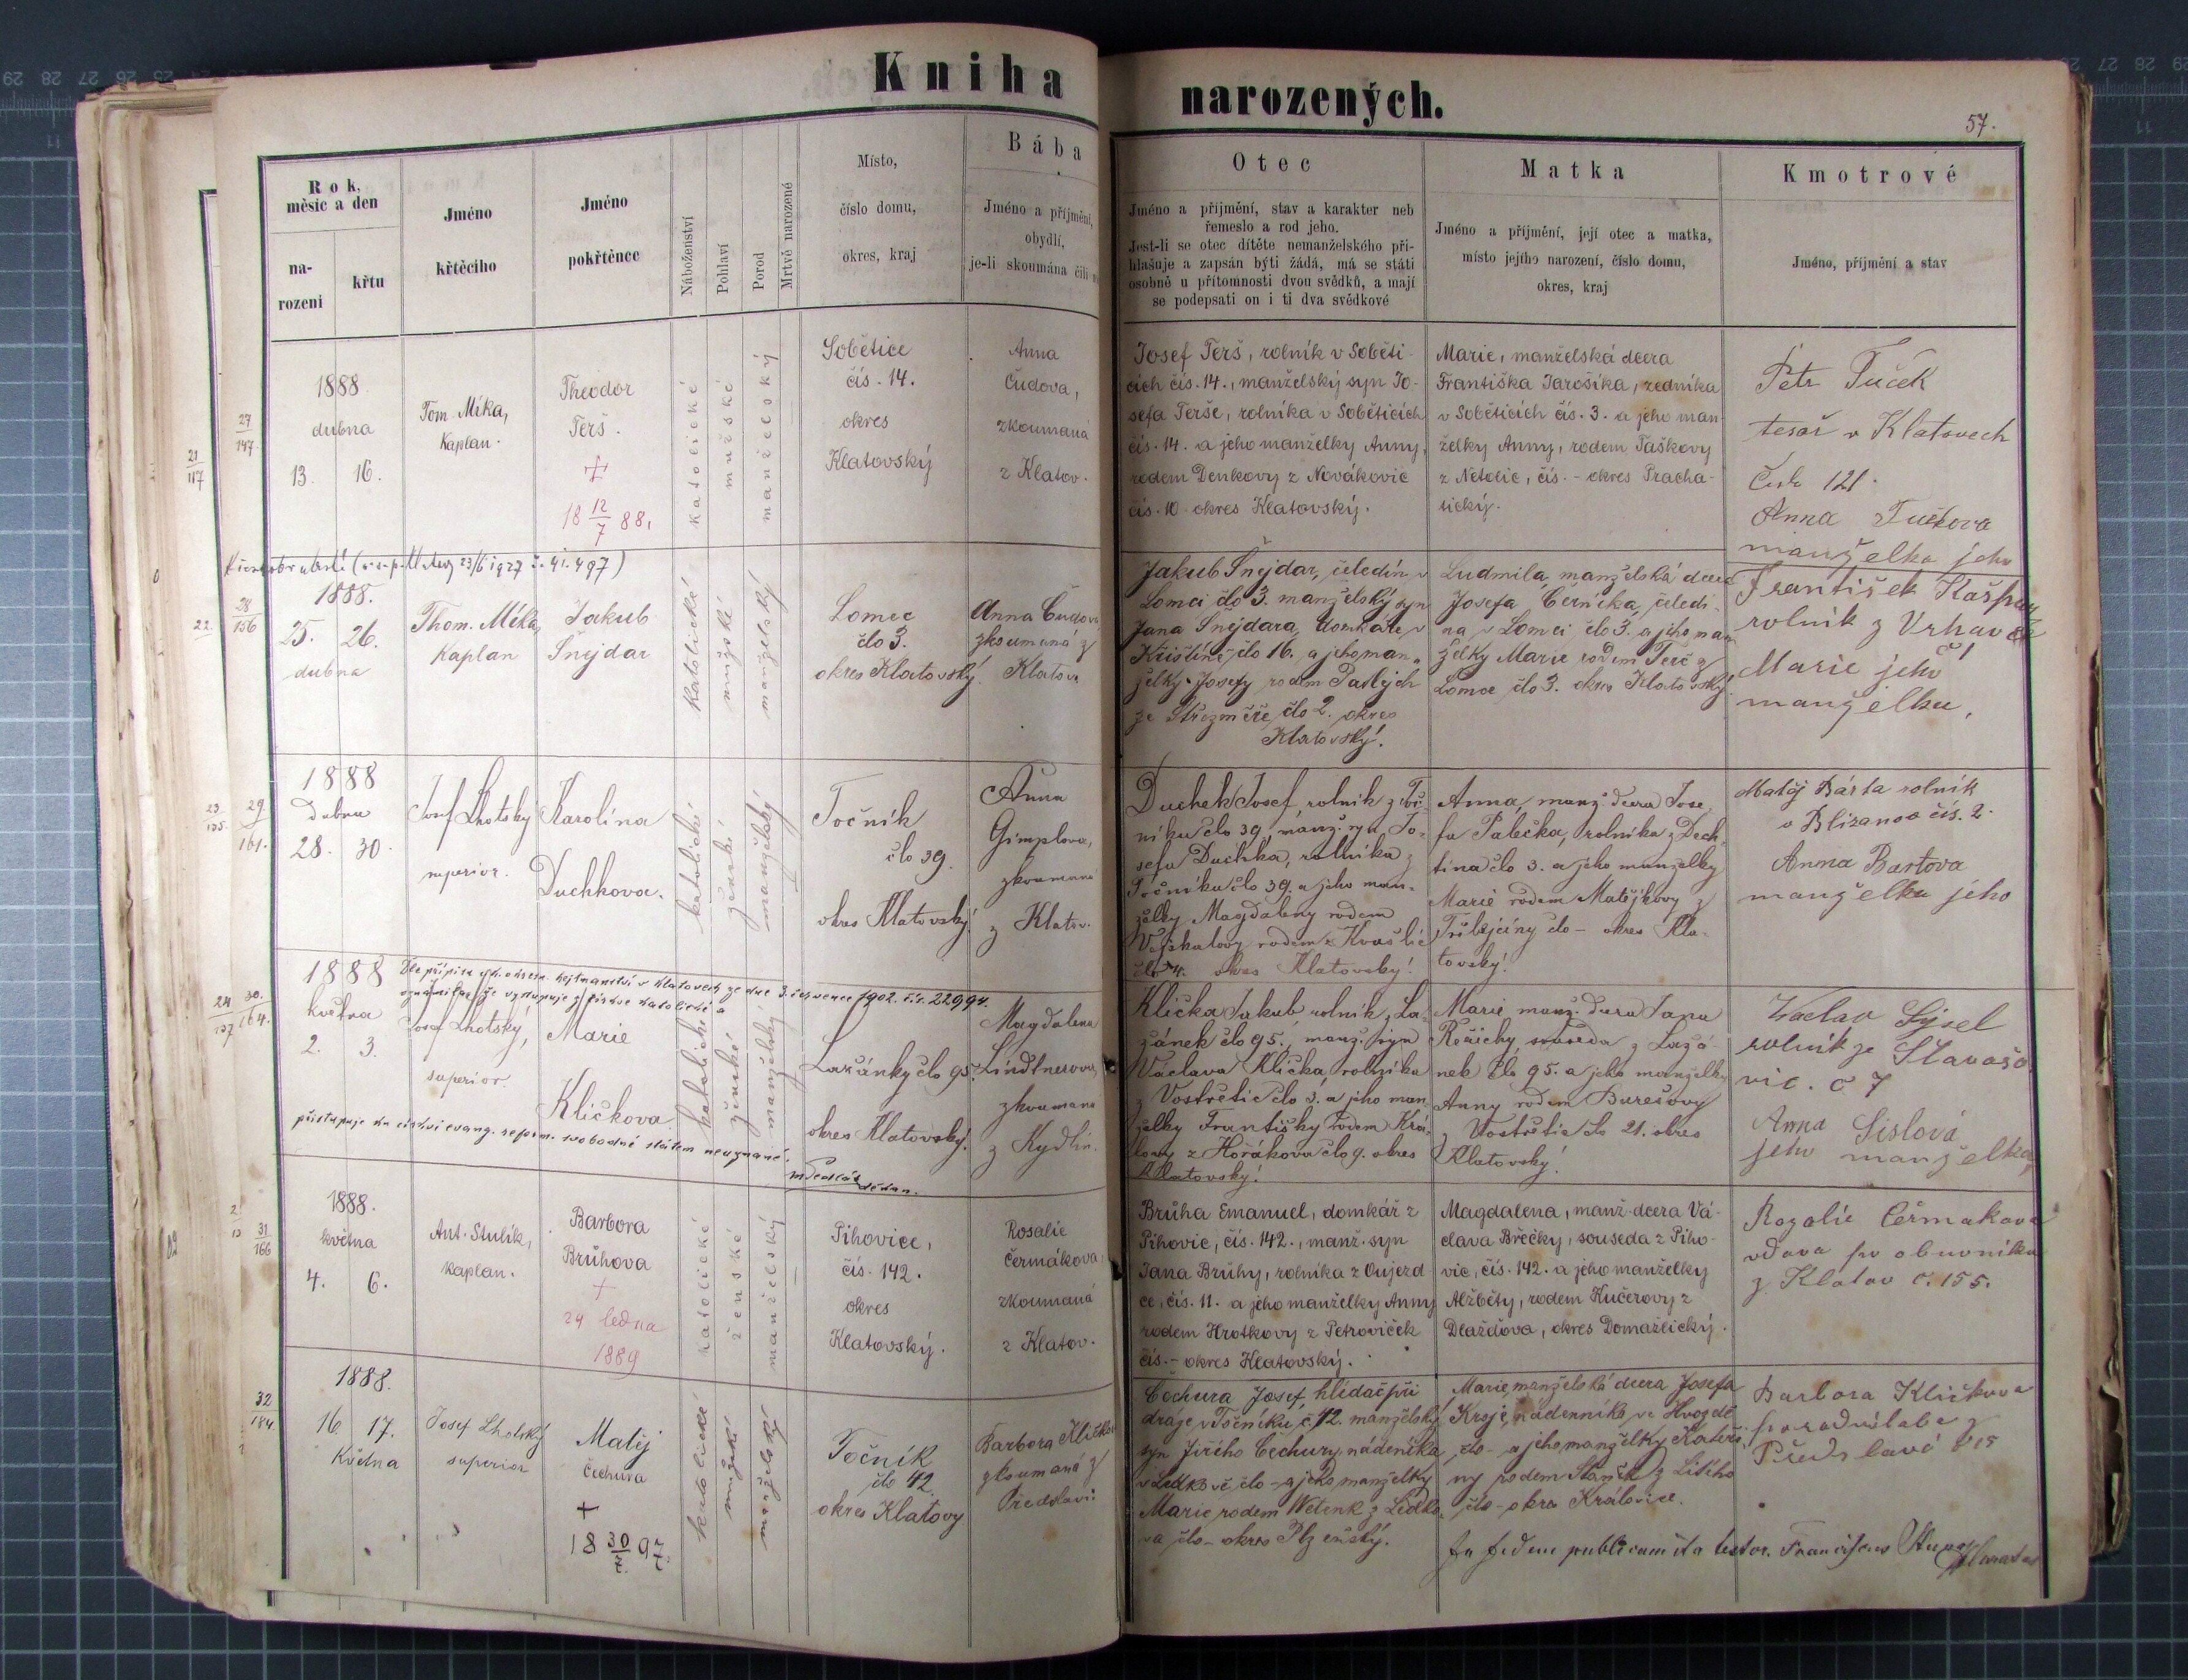 Kniha narozených.
57.
Rok, měsíc a den
narození
křtu
Jméno křtěcího
Jméno pokřtěnce
Náboženství
Pohlaví
Porod
Mrtvě narozené
Místo,
číslo domu,
okres, kraj
Bába
Jméno a příjmení,
obydlí,
je-li skoumána čili
Otec
Jméno a přijmění, stav a karakter neb
řemeslo a rod jeho.
Jest-li se otec dítěte nemanželského při-
hlašuje a zapsán býti žádá, má se státi
osobně u přítomnosti dvou svědků, a mají
se podepsati on i ti dva svědkové
Matka
Jméno a příjmení, její otec a matka,
místo jejího narození, číslo domu,
okres, kraj
Kmotrové
Jméno, příjmení a stav
27
147.
21
117
1888
dubna
13. 16.
Tom. Míka,
Kaplan.
Theodor
Terš.
+
18 12/7 88.
katolické
mužské
manželský
Sobětice
čís. 14.
okres
Klatovský
Anna
Čudova,
zkoumaná
z Klatov.
Josef Terš, rolník v Soběti-
cích čís. 14., manželský syn Jo-
sefa Terše, rolníka v Soběticích
čís. 14. a jeho manželky Anny,
rodem Denkovy z Novákovic
čís. 10 okres Klatovský.
Marie, manželská dcera
Františka Jarošíka, redníka
v Soběticích čís. 3. a jeho man-
želky Anny, rodem Taškovy
z Netolic, čís. - okres Pracha-
tický.
Petr Tuček
tesař v Klatovech
Čislo 121.
Anna Tučkova
manželka jeho
28
156
22.
1888.
25. 26.
dubna
Thom. Míka,
Kaplan
Jakub
Šnejdar
katolické
mužské
manželský
Lomec
člo 3.
okres Klatovský.
Anna Čudova
zkoumaná z
Klatov
Jakub Šnejdar, čeledín v
Lomci člo 3. manželský syn
Jana Šnejdara, domkáře v
Křištíně člo 16. a jeho man-
želky Josefy rodem
ze Střezměře, člo 2. okres
Klatovský.
Ludmila, manželská dcera
Josefa Černíka, čeledí-
na v Lomci člo 3. a jeho man-
želky Marie rodem Terč z
Lomce člo 3. okres Klatovský.
František Kašpar
rolník z Vrhavče
Marie jeho
manželka,
29
161.
23
135.
1888
Dubna
28. 30.
Josef Lhotský
superior.
Karolína
Duchkova.
katolické
ženské
manželský
Točník
člo 39.
okres Klatovský.
Anna
Gimplova,
zkoumaná
z Klatov.
Duchek Josef, rolník z Toč-
níku člo 39, manž. syn Jo-
sefa Duchka, rolníka z
Točníku člo 39. a jeho man-
želky Magdaleny rodem
rodem z
člo 4. okres Klatovský.
Anna, manž. dcera Jose-
fa Palečka, rolníka z Dech-
tína člo 3. a jeho manželky
Marie rodem Matějkovy z
člo - okres Kla-
tovský.
Matěj Bárta rolník
v Bližanov čís. 2.
Anna Bartova
manželka jeho
30.
164.
24
137
Dle přípisu c. k. okres. hejtmanství v Klatovech ze dne 3. července 1902. č. 22994.
oznámila, že vystupuje z církve katolické a
1888
května
2. 3.
Josef Lhotský,
superior.
Marie
Kličkova
katolické
ženské
manželský
Lazánky člo 95.
okres Klatovský.
Magdalena
Lindtnerova,
zkoumana
z Kydlin.
přistupuje ku církvi evang. reform. svobodné státem neuznané.
děkan.
Klička Jakub rolník, La-
zánek člo 95., manž. syn
Václava Klička, rolníka
z Vostřetic člo 3. a jeho man-
želky Františky rodem Krá-
lovy z Hořákova člo 9. okres
Klatovský.
Marie manž. dcera Jana
Řeřichy, souseda z Lazá-
nek člo 95. a jeho manželky
Anny rodem Burešovy
z Vostřetic člo 21. okres
Klatovský.
Vaclav Sýsel
rolník ze Slavošo
vic. č 7
Anna Sislová
jeho manželka
31
166
1888.
května
4. 6.
Ant. Stulík,
kaplan.
Barbora
Brůhova
+
24 ledna
1889
katolické
ženské
manželský
Pihovice,
čís. 142.
okres
Klatovský.
Rosalie
Čermákova,
zkoumaná
z Klatov.
Brůha Emanuel, domkář z
Pihovic, čís. 142., manž. syn
Jana Brůhy, rolníka z Oujezd-
ce, čís. 11. a jeho manželky Anny
rodem Hrotkovy z Petroviček
čís. - okres Klatovský.
Magdalena, manž. dcera Vá-
clava Břečky, souseda z Piho-
vic, čís. 142. a jeho manželky
Alžběty, rodem Kučerovy z
Dlažďova, okres Domažlický.
Rozalie Čermakova
vdova po obuvníku
z Klatov č. 155.
32
184.
1888.
16. 17.
Května
Josef Lhotský
superior
Matěj
Čechura
+
18 30/7. 97
katolické
mužské
manželský
Točník
člo 42.
okres Klatovy
Barbora Kličkov
zkoumaná z
Předslavi
Čechura Josef, hlídač při
draze v Točníku, č 42. manželský
syn Jiřího Čechury, nádeníka
v Ledkově, člo - a jeho manželky
Marie rodem Wetenk z Ledko-
va člo - okres Plzeňský.
Marie, manželská dcera Josefa
Kroje, nádenníka ve Hvozdě
člo - a jeho manželky Kateři-
ny rodem Staněk z Litího
člo - okres Královice.
Barbora Kličkova
porodní baba z
Předslavě č 15
In fidem publicam ita testor. Franciscus